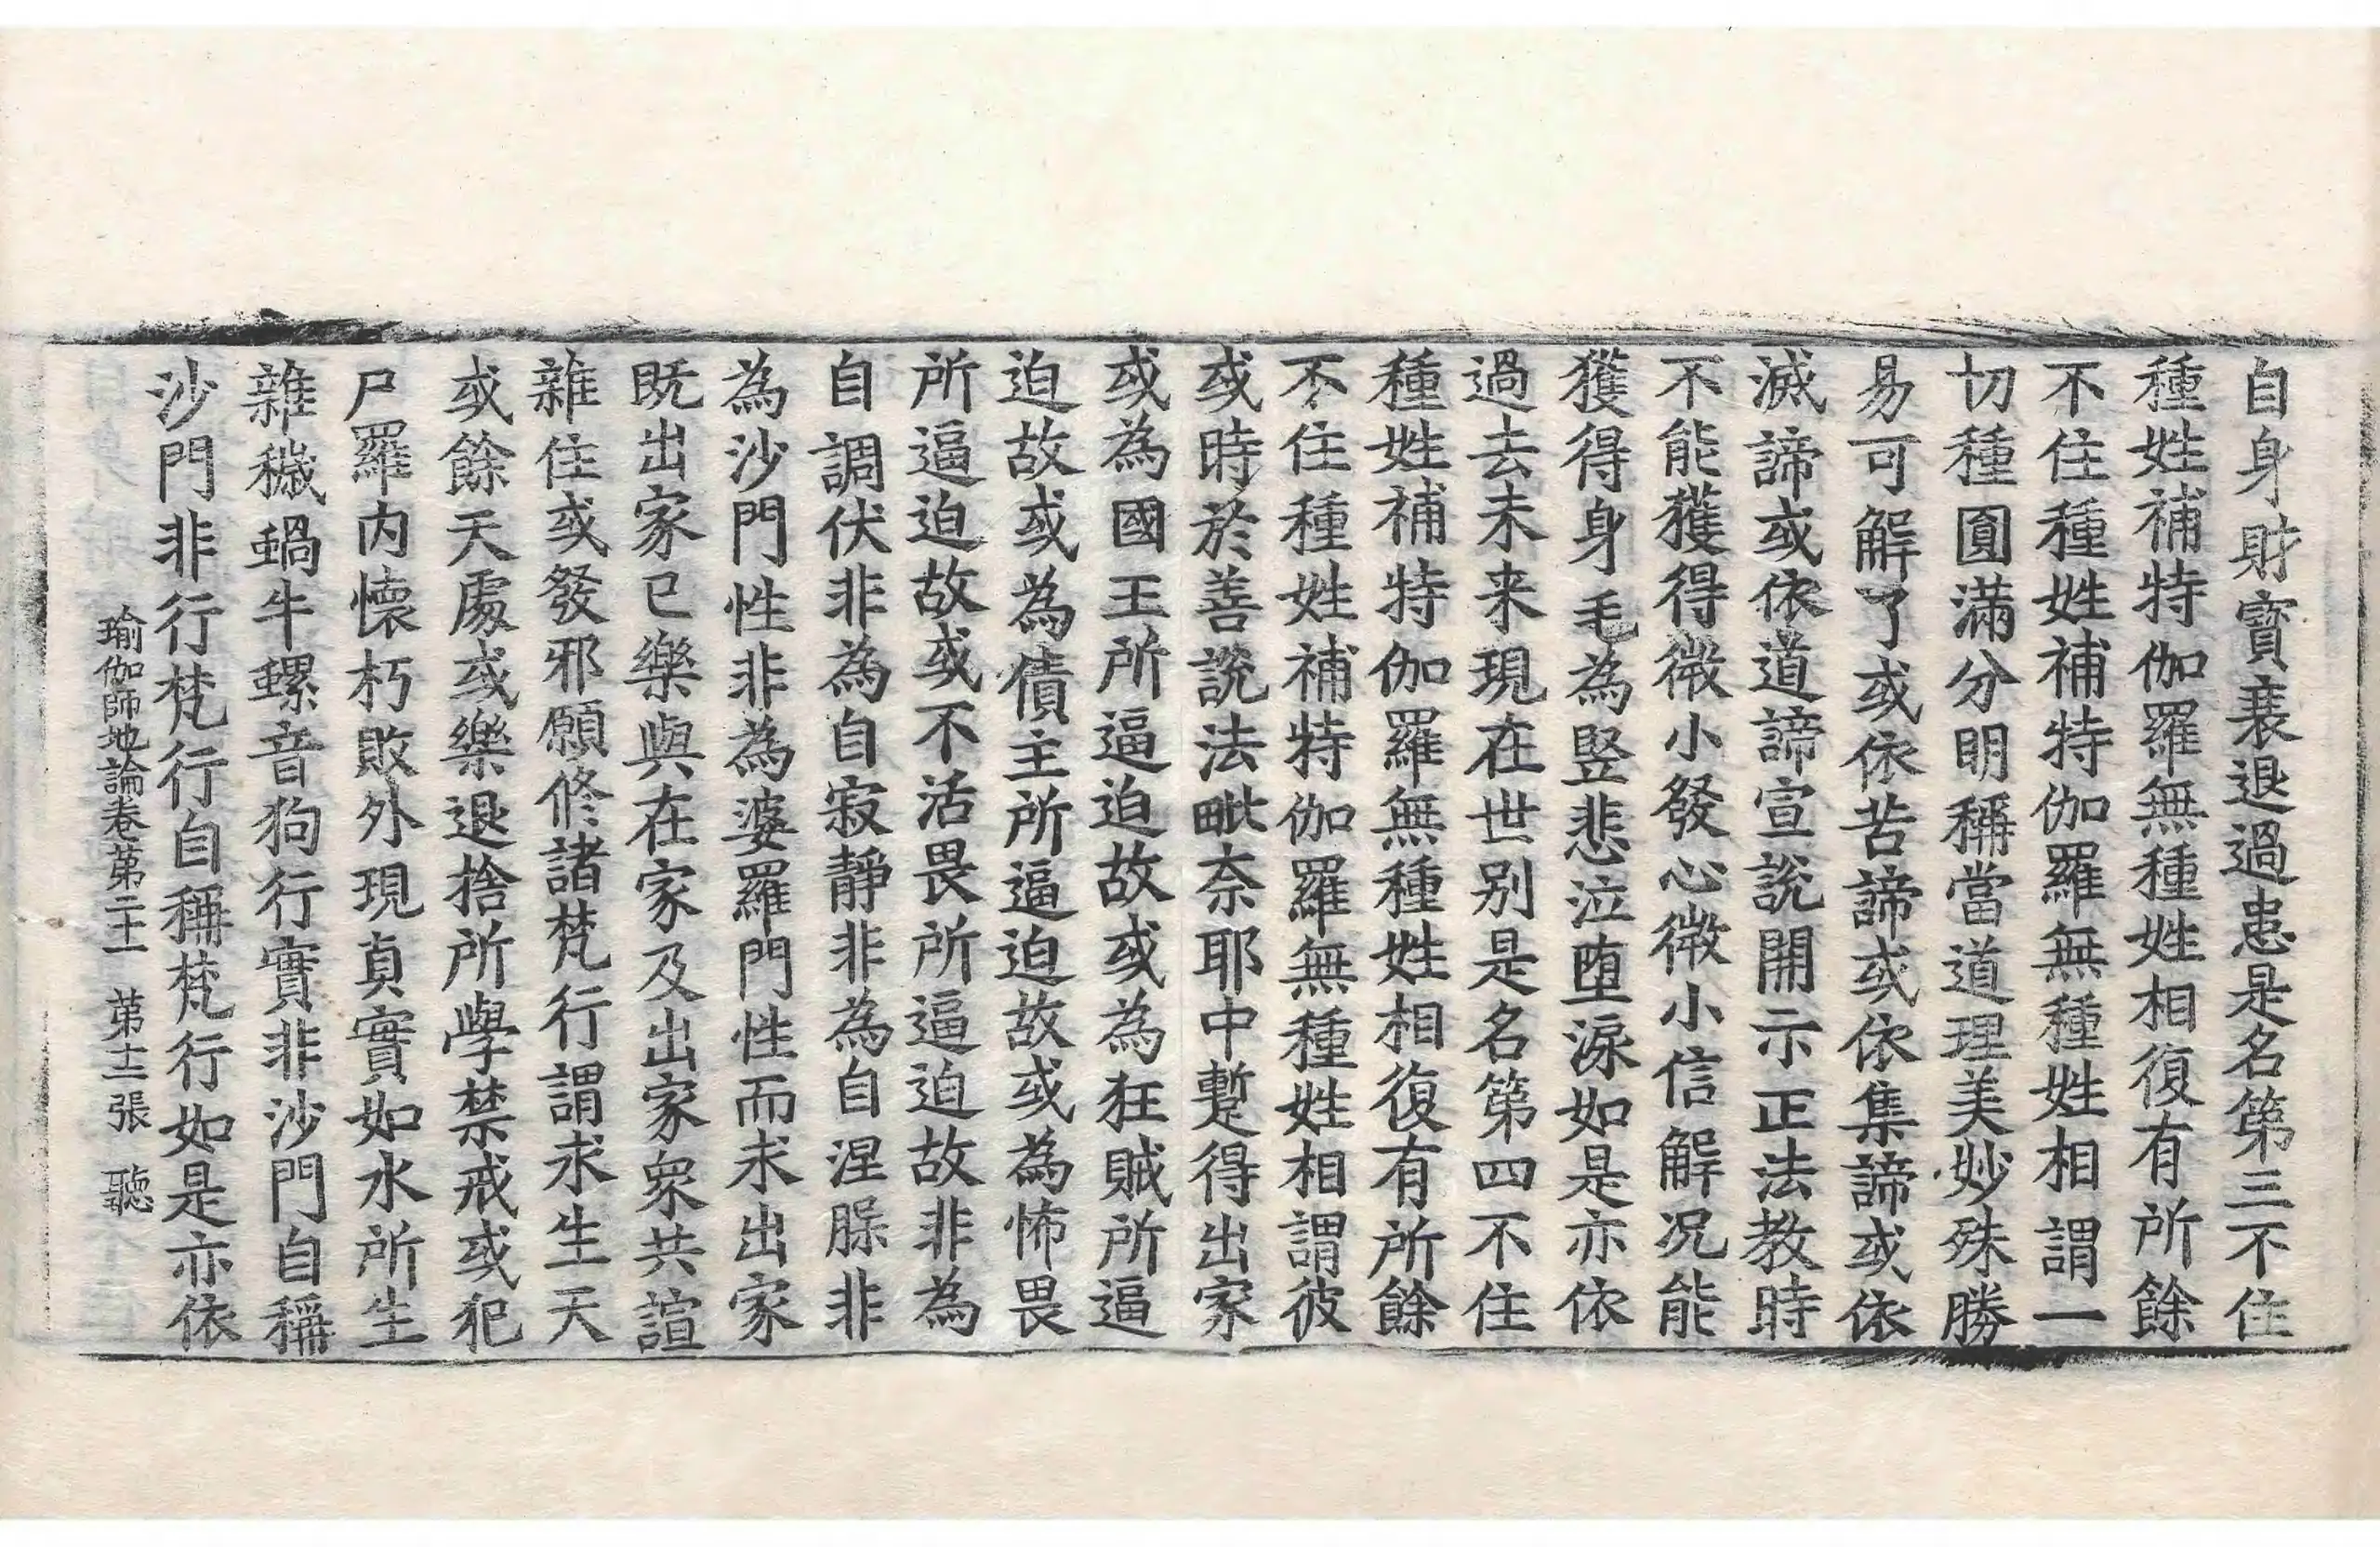 自身財寶衰退過患是名第三不住
種姓補特伽羅無種姓相復有所餘
不住種姓補特伽羅無種姓相謂一
切種圓滿分明稱當道理美妙殊勝
易可解了或依苦諦或依集諦或依
滅諦或依道諦宣說開示正法教時
不能獲得微小發心微小信解況能
獲得身毛為竪悲泣堕淚如是亦依
過去未来現在世别是名第四不住
種姓補特伽羅無種姓相復有所餘
不住種姓補特伽羅無種姓相謂彼
或時於善說法毗奈耶中蹔得出家
或為國王所逼迫故或為狂賊所逼
迫故或為債主所逼迫故或為怖畏
所逼迫故或不活畏所逼迫故非為
自調伏非為自寂靜非為自涅槃非
為沙門性非為婆羅門性而求出家
既出家已樂與在家及出家眾共諠
雜住或發邪願修諸梵行謂求生天
或餘天處或樂退捨所學禁戒或犯
尸羅内懷朽敗外現真實如水所生
雜穢蝸牛螺音狗行實非沙門自稱
沙門非行梵行自稱梵行如是亦依
瑜伽師地論卷第二十一 第十二張 聽